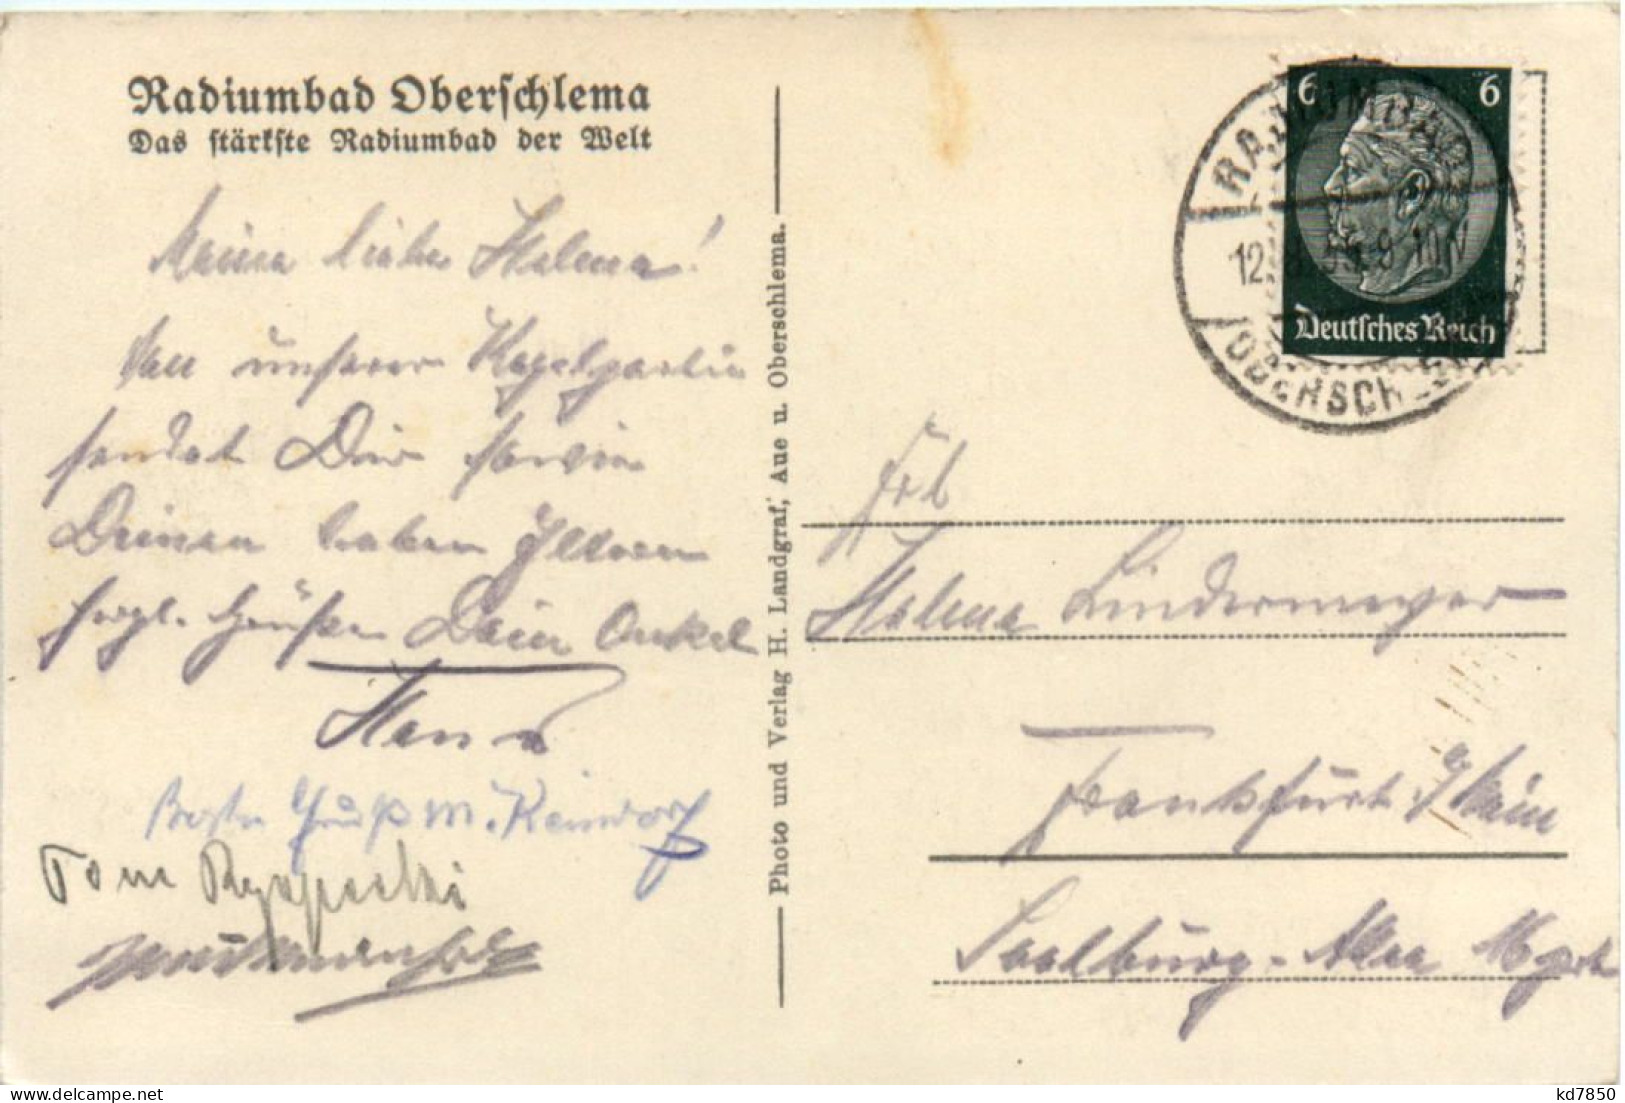 Radiumbad Oberschlema
Das stärkste Radiumbad der Welt
Meine liebe Helena!
Von unserer Kegelpartie
sendet Dir sowie
Deinen lieben Eltern
herzl. Grüße Dein Onkel
Hans
Beste Gruß M. Reindorf
Tom
Photo und Verlag H. Landgraf, Aue u. Oberschlema.
6 6
Deutsches Reich
RADIUMBAD
12. 9-10 V
OBERSCHLEMA
Frl
Helena Lindermeyer
Frankfurt a/Main
Saalburg-Allee
kd7850